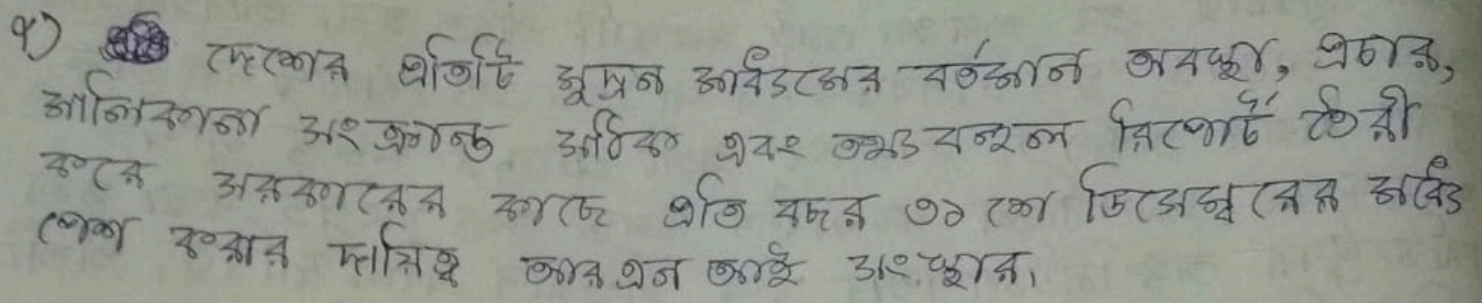 ৫) দেশের প্রতিটি মুদ্রন মাধ্যমের বর্তমান অবস্থা, প্রচার,
মালিকানা সংক্রান্ত সঠিক এবং তথ্য বহুল রিপোর্ট তৈরী
করে সরকারের কাছে প্রতি বছর ৩১ শে ডিসেম্বরের মধ্যে
পেশ করার দায়িত্ব আর এন আই সংস্থার।